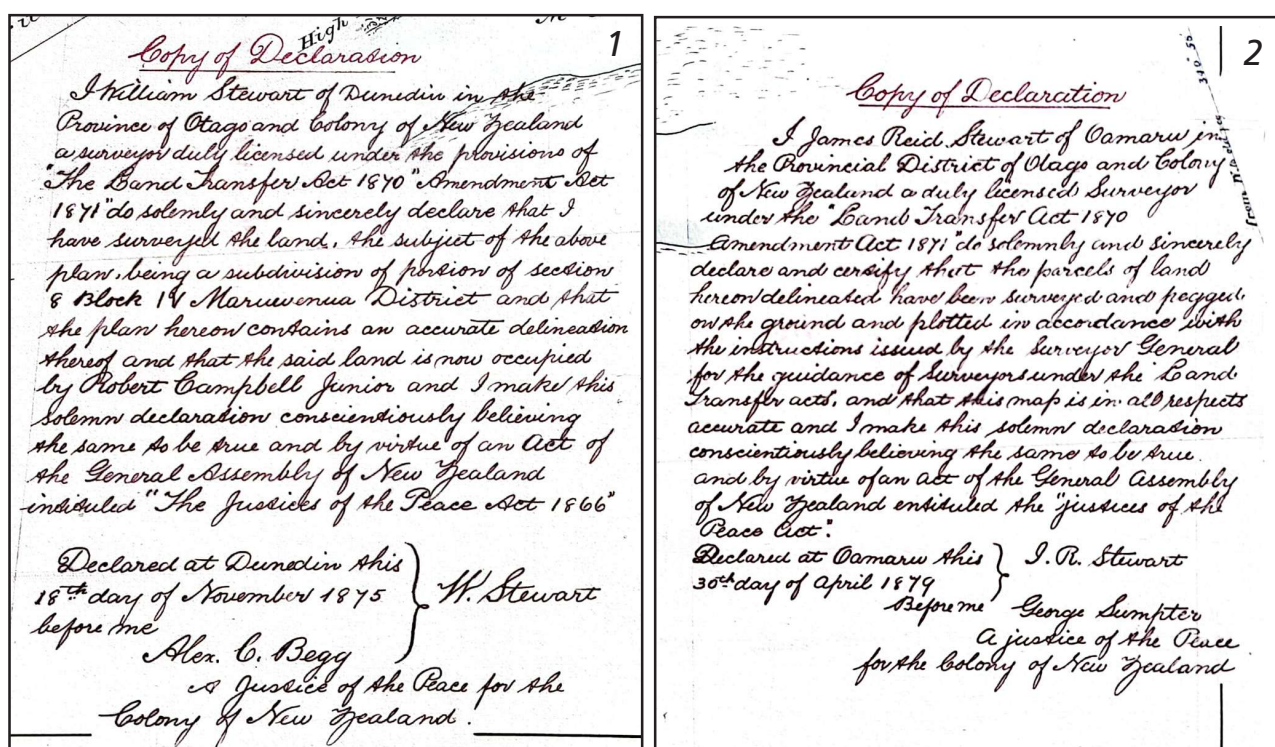 High
1
Copy of Declaration
I William Stewart of Dunedin in the
Province of Otago and Colony of New Zealand
a surveyor duly licensed under the provisions of
"The Land Transfer Act 1870" Amendment Act
1871" do solemly and sincerely declare that I
have surveyed the land, the subject of the above
plan, being a subdivision of portion of section
8 Block IV Maruewenua District and that
the plan hereon contains an accurate delineation
thereof and that the said land is now occupied
by Robert Campbell Junior and I make this
solemn declaration conscientiously believing
the same to be true and by virtue of an Act of
the General Assembly of New Zealand
intituled "The Justices of the Peace Act 1866"
Declared at Dunedin this
18th day of November 1875
before me
W. Stewart
Alex. C. Begg
A Justice of the Peace for the
Colony of New Zealand.
2
Copy of Declaration
I James Reid Stewart of Oamaru in
the Provincial District of Otago and Colony
of New Zealand a duly licensed Surveyor
under the "Land Transfer Act 1870
Amendment Act 1871" do solemnly and sincerely
declare and certify that the parcels of land
hereon delineated have been surveyed and pegged
on the ground and plotted in accordance with
the instructions issued by the Surveyor General
for the guidance of Surveyors under the Land
Transfer acts, and that this map is in all respects
accurate and I make this solemn declaration
conscientiously believing the same to be true.
and by virtue of an act of the General Assembly
of New Zealand entituled the "justices of the
Peace Act".
Declared at Oamaru this
30th day of April 1879
I. R. Stewart
Before me George Sumpter
A justice of the Peace
for the Colony of New Zealand